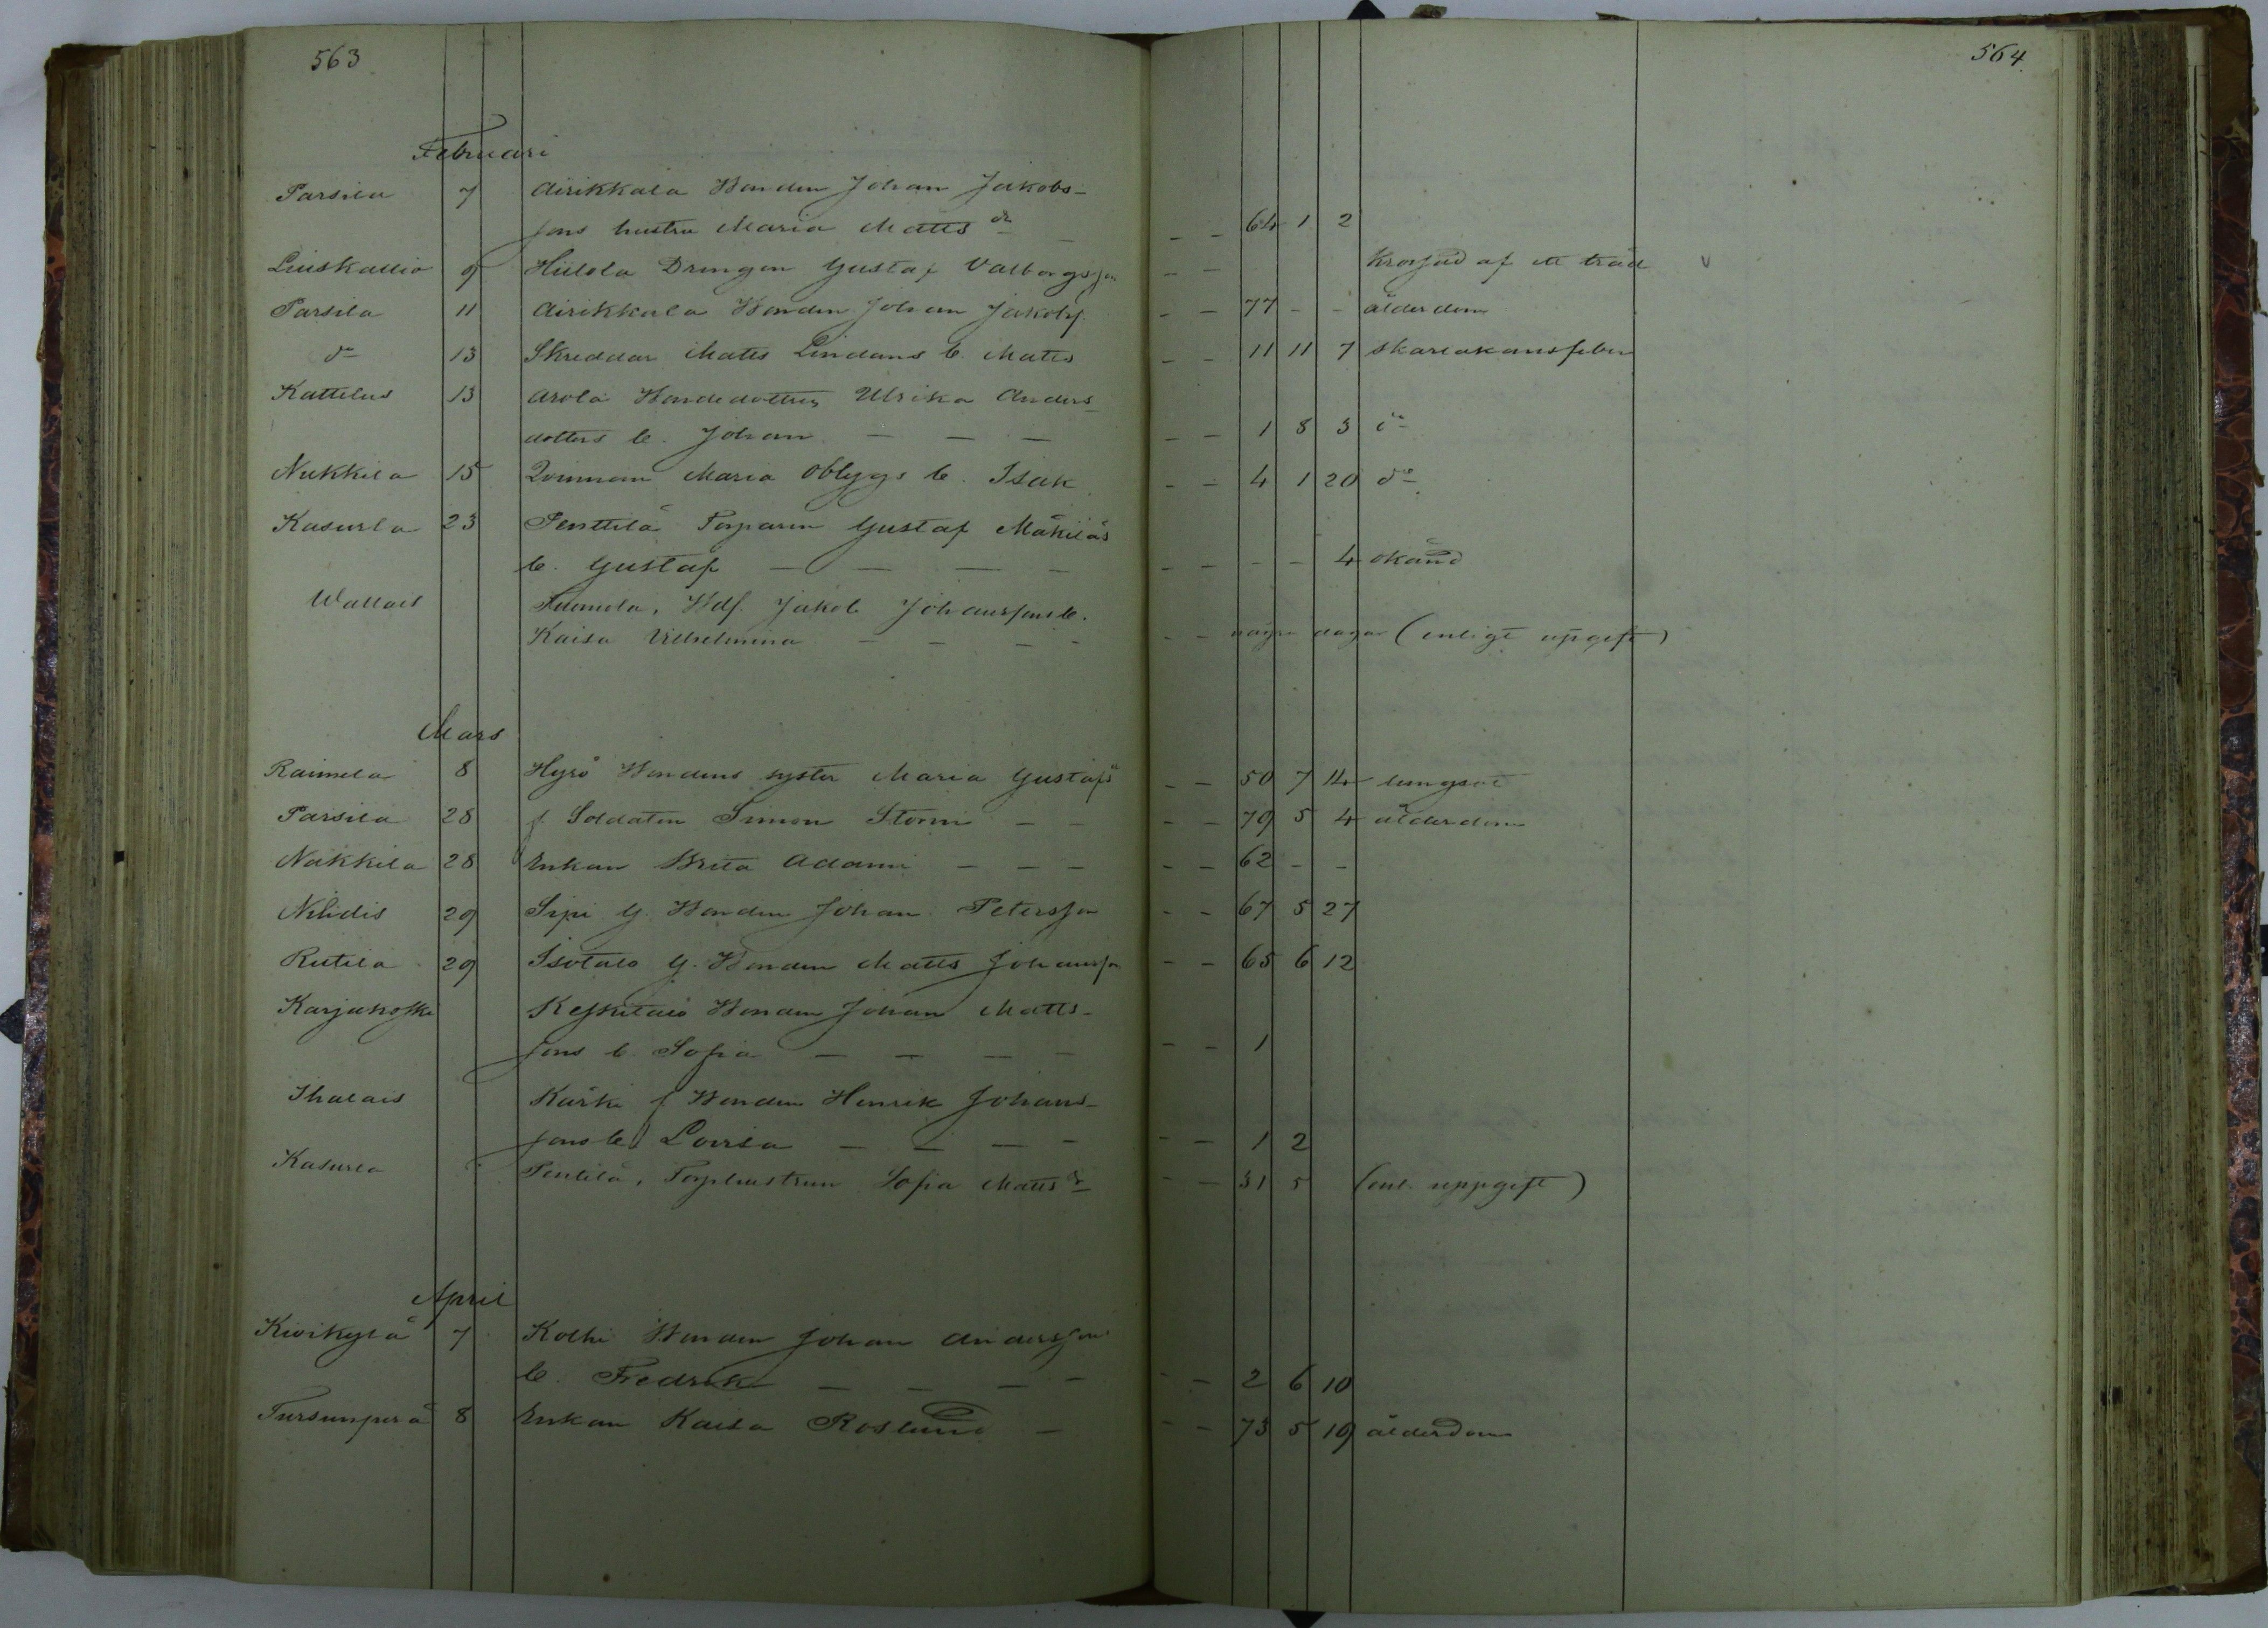 563
564
Februari
Parsila 7 Airikkala Bonden Johan Jakobs-
sons hustru Maria Matts dr — — — 64 1 2
Leiskallio 9 Hiilola Drengen Gustaf Valborgsson — — krossad af ett träd v
Parsila 11 Airikkala Bonden Johan Jakobs. — — 77 - - ålderdom
do 13 Skreddar Matts Lindans b. Matts — — 11 11 7 skarlakansfeber
Kattelus 13 Arola Bondedottren Ulrika Anders-
dotters b. Johan — — — — — 1 8 3 do
Nakkila 15 Qvinnan Maria Oblygs b. Isak — — 4 1 20 do
Kasurla 23 Penttilä Torparen Gustaf Mäkiläs
b. Gustaf — — — — — — - - 4 okänd
Wallais Tuomola, Bdf. Jakob Johanssons b.
Kaisa Vilhelmina — — — - — — några dagar (enligt upgift)
Mars
Raimela 8 Hyrö Bondens syster Maria Gustafs — — 50 7 14 lungsot
Parsila 28 f Soldaten Simon Storm — — — — 79 5 4 ålderdom
Nakkila 28 Enkan Brita Adami — — — — — 62 - -
Nilidis 29 Sipi g. Bonden Johan Petersson — — 67 5 27
Rutila 29 Isotalo g. Bonden Matts Johansson — — 65 6 12
Karjukoski Keskitalo Bonden Johan Matts-
sons b. Sofia — — — — — — 1
Ihalais Kärki f Bonden Henrik Johans-
sons b. Lovisa — — — - — — 1 2
Kasurla Pentilä, Torphustrun Sofia Matts dr — — 31 5 (enl. uppgift)
April
Kivikylä 7 Kolhi Bonden Johan Anderssons
b. Fredrik — — — - - — 2 6 10
Tursunperä 8 Enkan Kaisa Roslund — — — 73 5 19 ålderdom